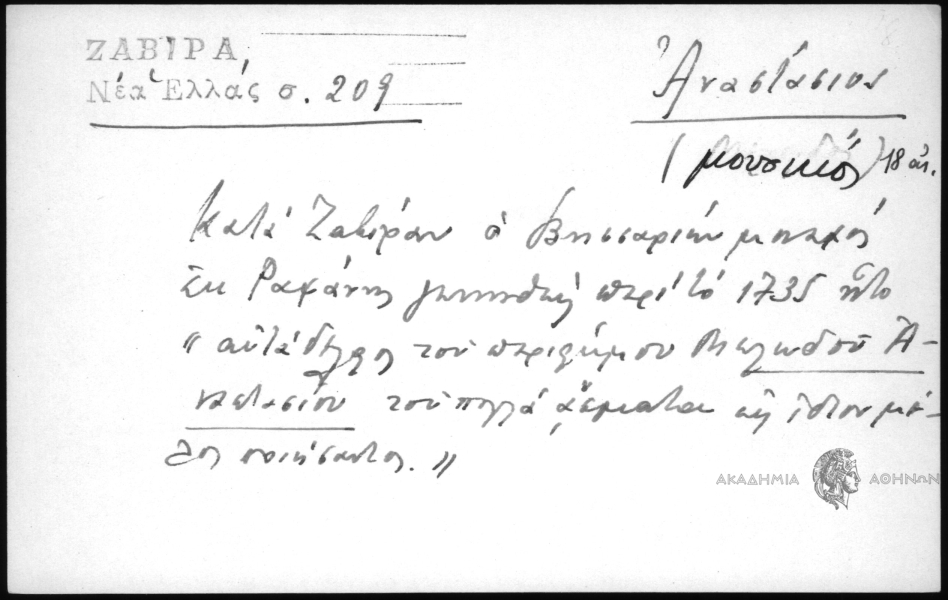 ΖΑΒΙΡΑ,
Νέα Ἑλλάς σ. 209
Ἀναστάσιος
(μουσικός) 18 αἰ.
Κατά Ζαβίραν ὁ Βησσαρίων μοναχός
ἐκ Ραψάνης γεννηθείς περί τό 1735 ἦτο
"αὐτάδελφος τοῦ περιφήμου Μελωδοῦ Ἀ-
ναστασίου τοῦ πολλά ἄσματα εἰς ἴδιον μέ-
λος ποιήσαντος."
ΑΚΑΔΗΜΙΑ ΑΘΗΝΩΝ